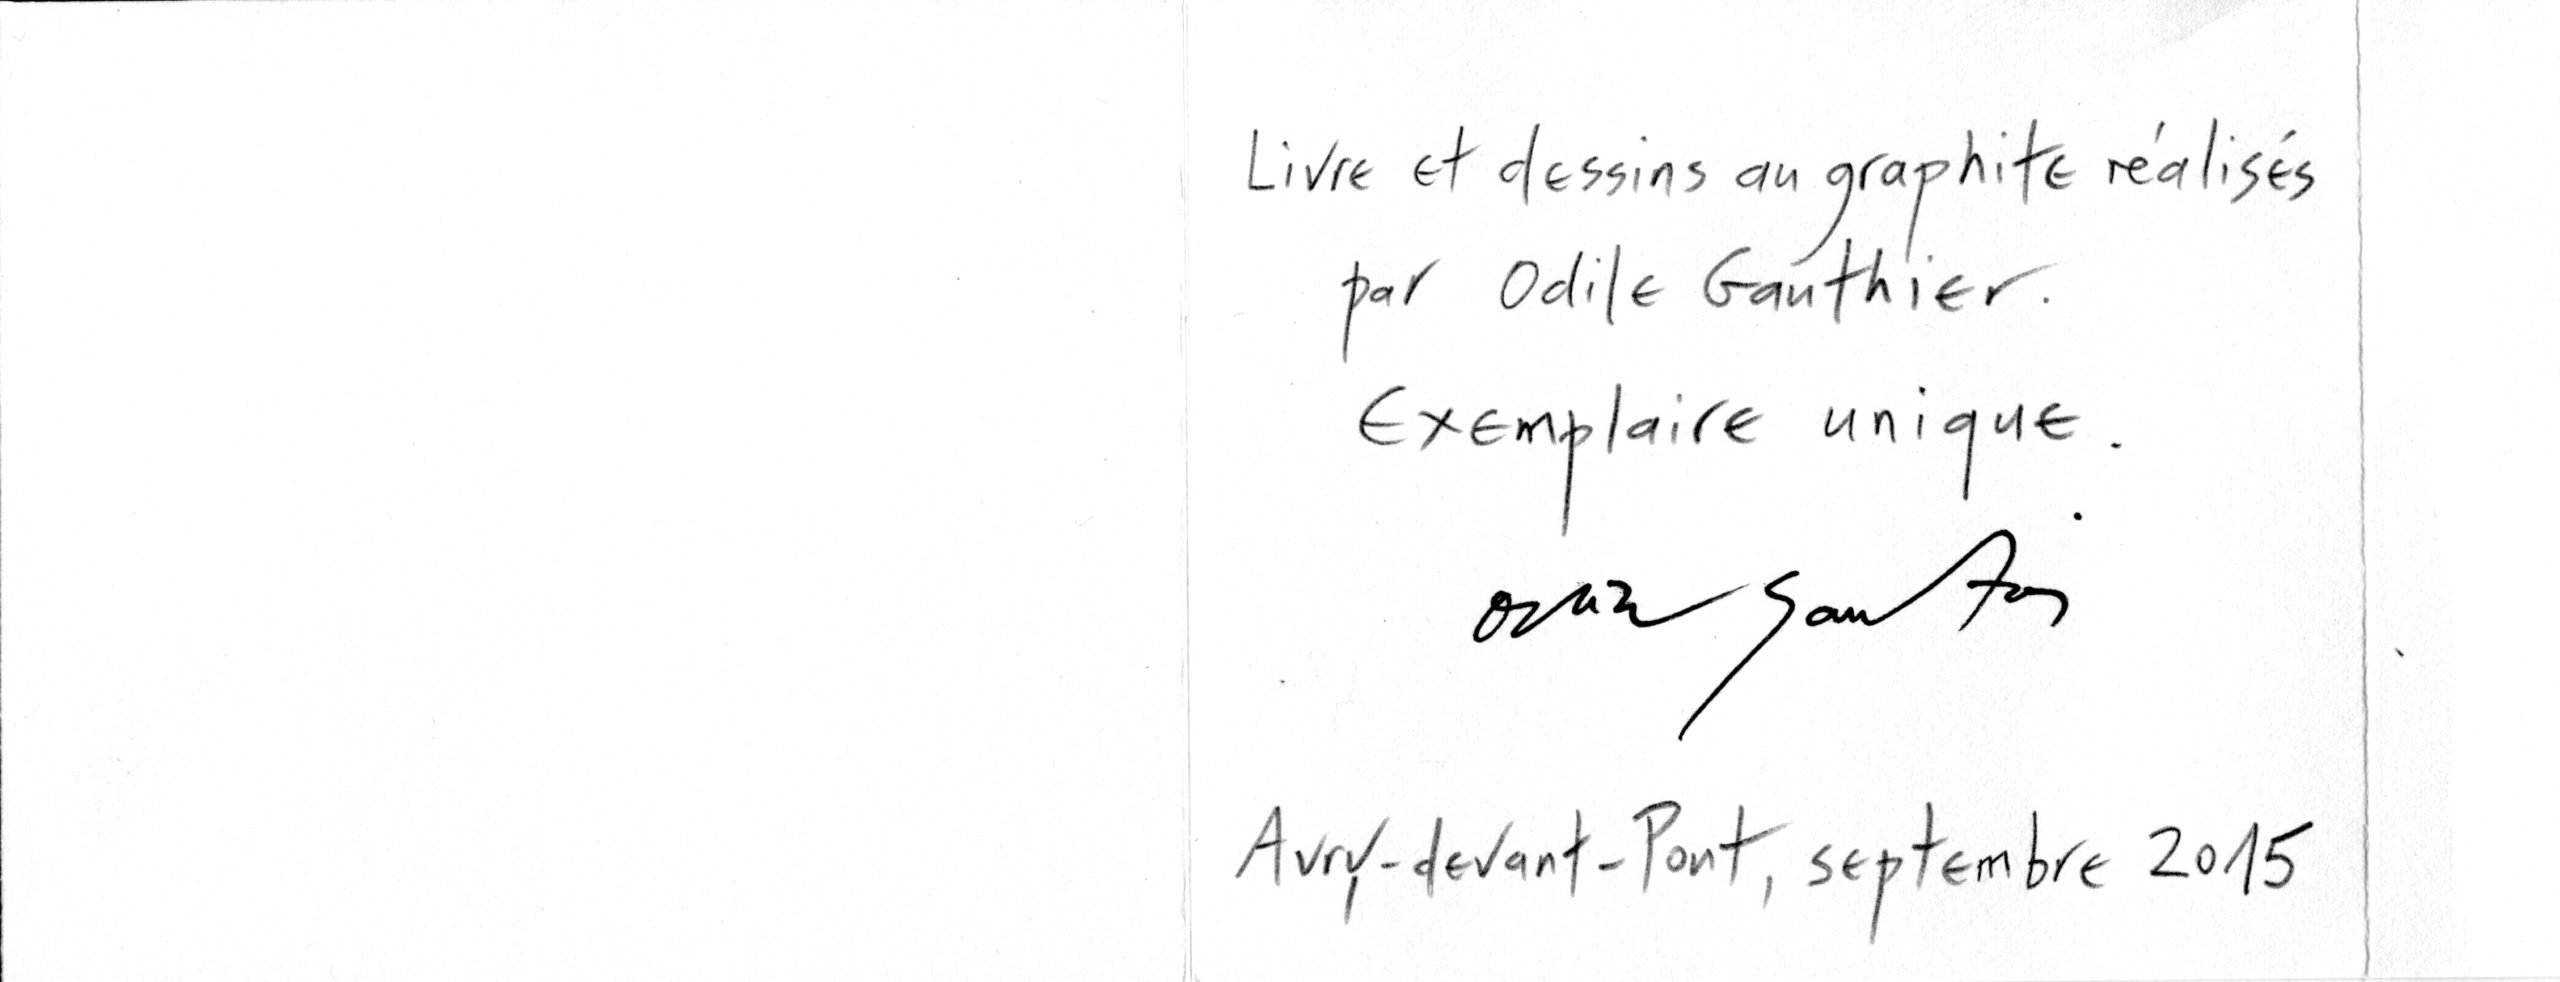 Livre et dessins au graphite réalisés
par Odile Gauthier.
Exemplaire unique.
Avry-devant-Pont, septembre 2015